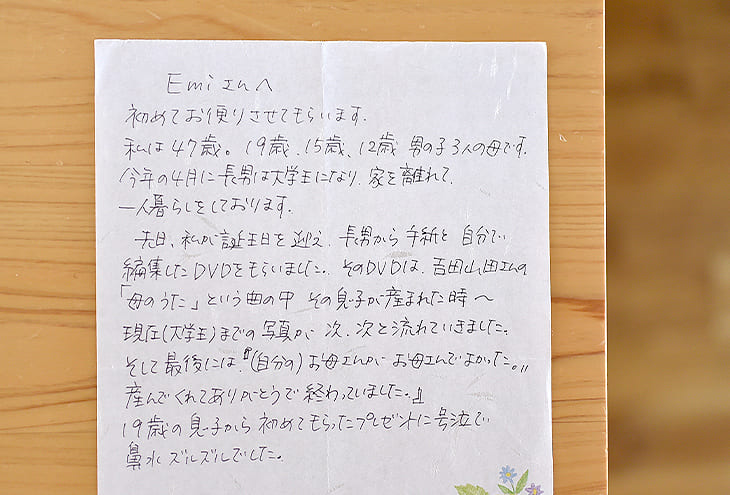 Emiさんへ
初めてお便りさせてもらいます.
私は47歳。19歳、15歳、12歳 男の子3人の母です.
今年の4月に長男は大学生になり、家を離れて、
一人暮らしをしております.
先日、私が誕生日を迎え、長男から手紙と自分で
編集したDVDをもらいました。そのDVDは、吉田山田さんの
「母のうた」という曲の中 その息子が産まれた時〜
現在(大学生)までの写真が 次、次と流れていきました。
そして最後には、『(自分の)お母さんが お母さんでよかった。"
産んでくれてありがとうで終わっていました。』
19歳の息子から初めてもらったプレゼントに号泣で
鼻水ズルズルでした。